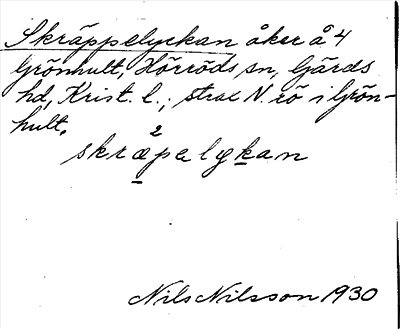 Skräppelyckan åker å 4
Grönhult, Hörröds sn, Gärds
hd, Krist. l.; strax N. rö i Grön-
hult.
skræ²pelykan
Nils Nilsson 1930